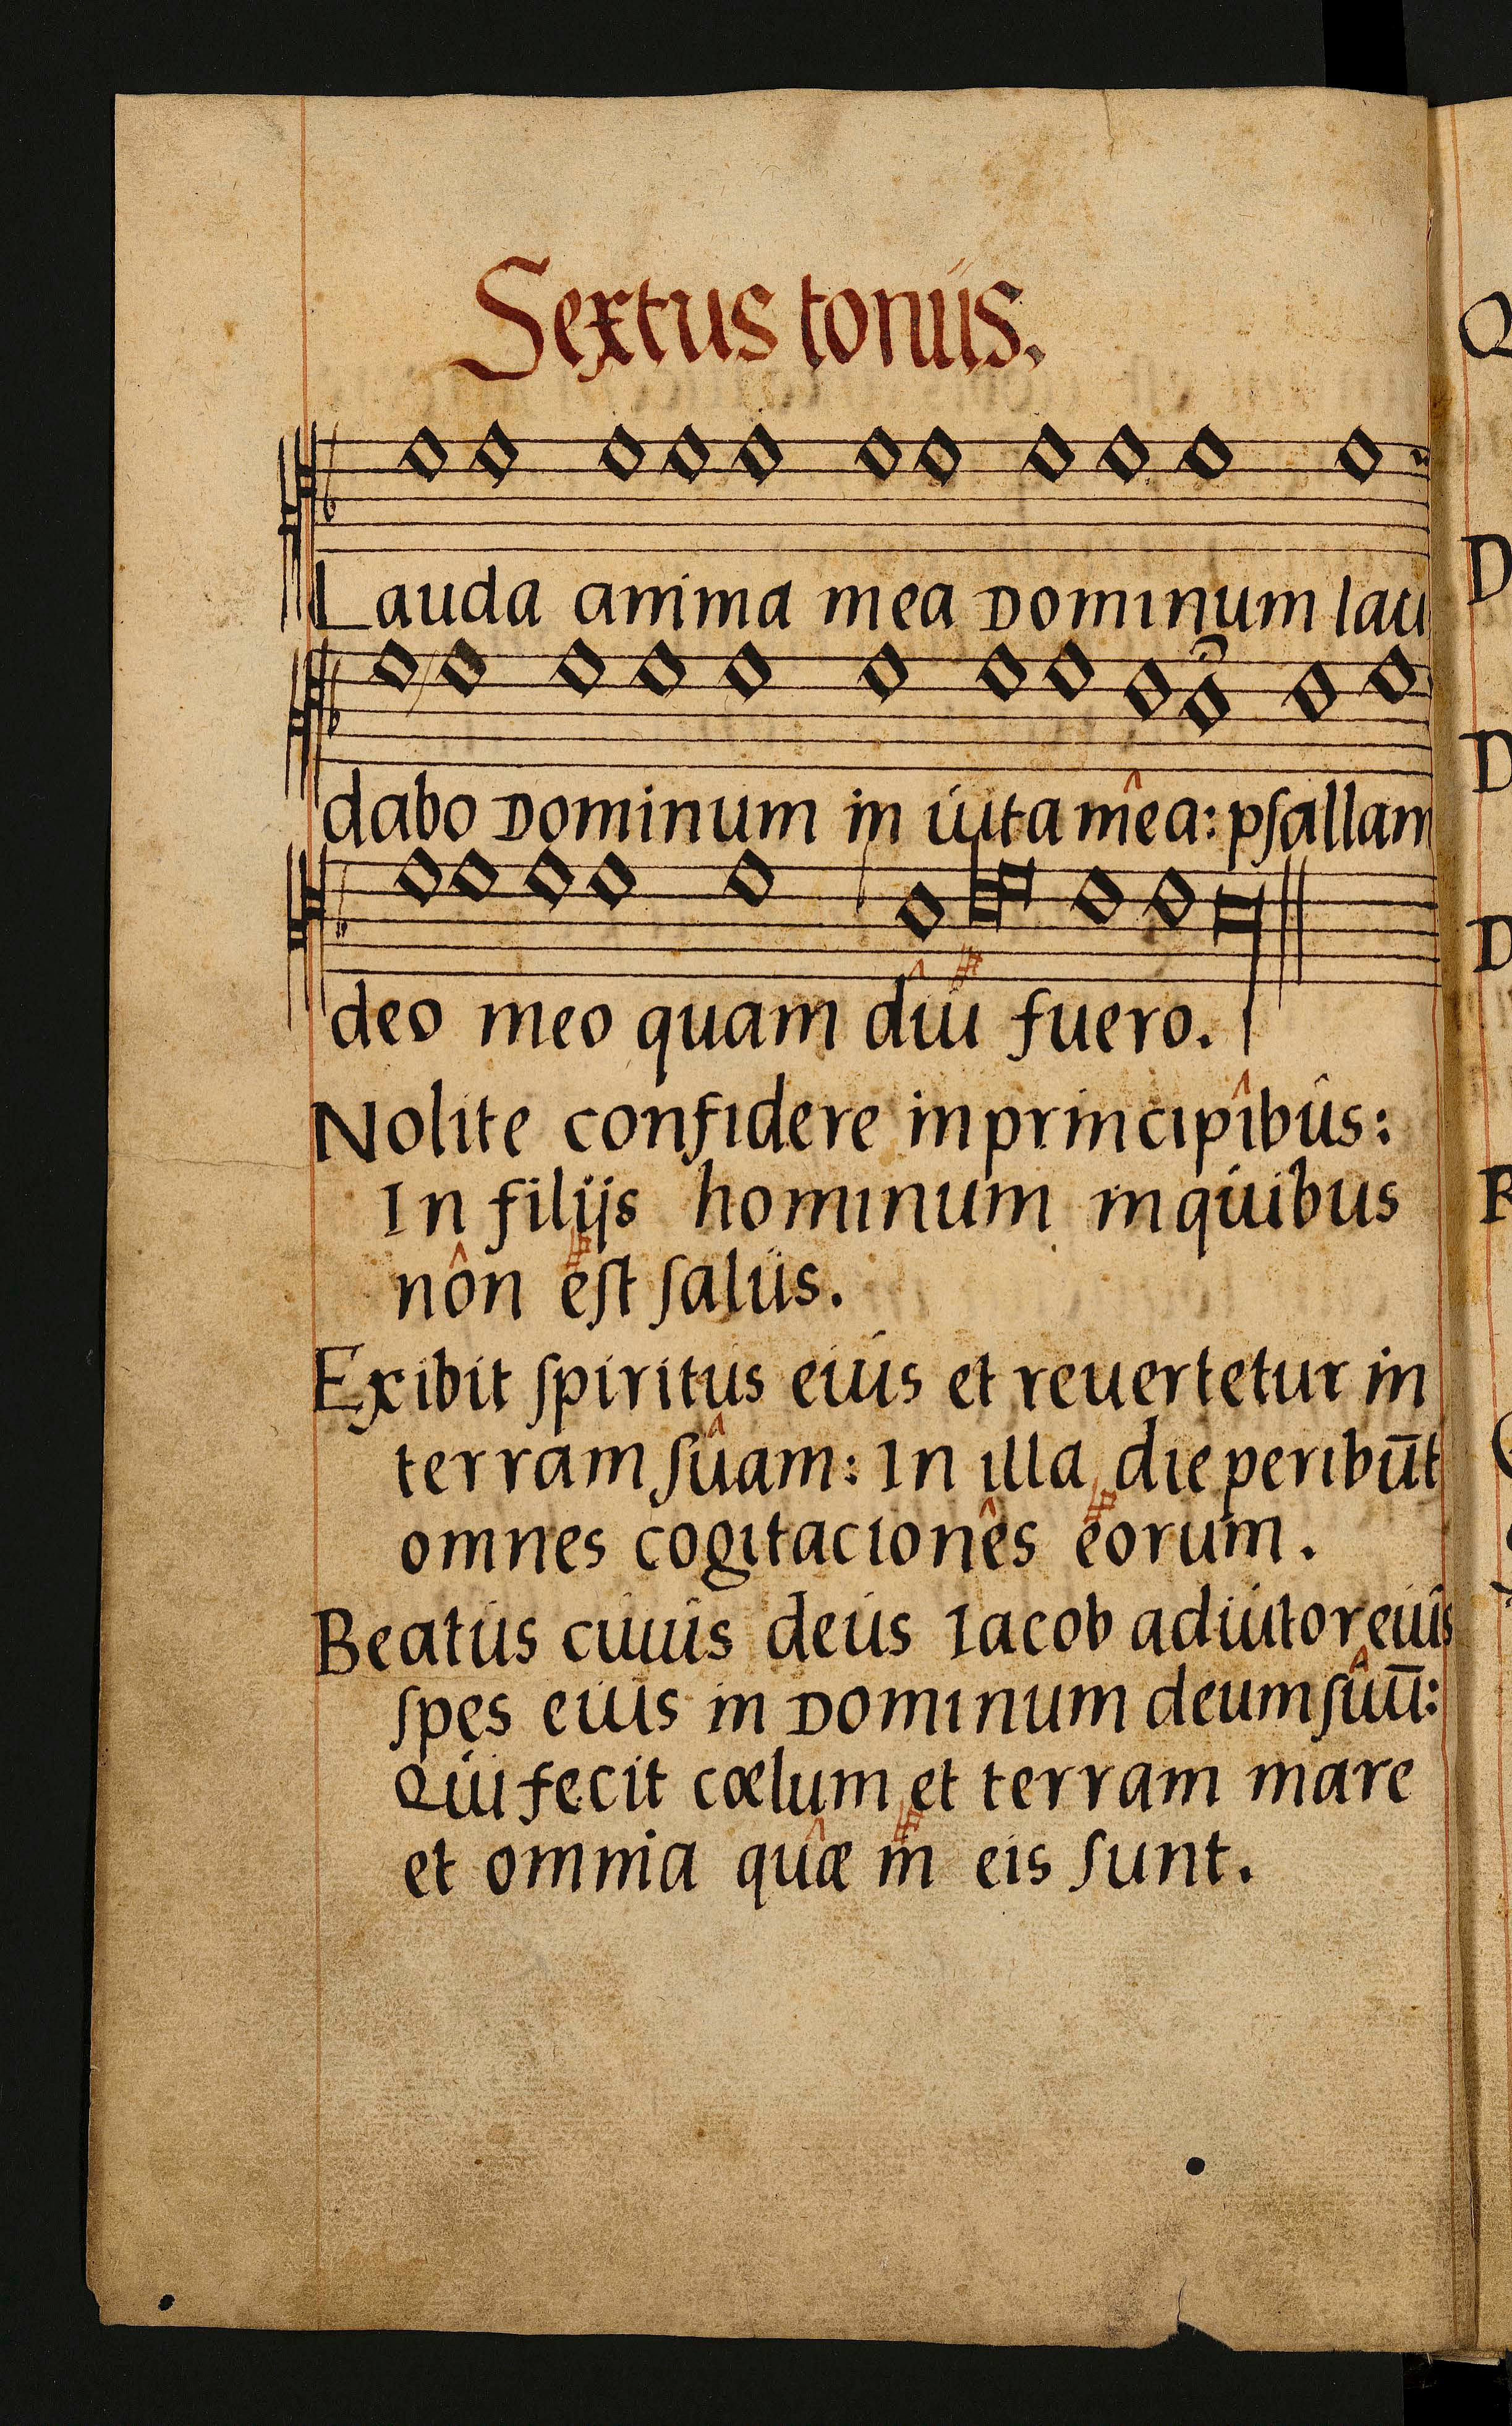 Sextus tonus.
Lauda anima mea Dominum lau
dabo Dominum in uita mêa: pſallam
deo meo quam diu fuero.
Nolite confidere in principîbus:
In filijs hominum in quibus
nôn eſt ſalus.
Exibit ſpiritus eius et reuertetur in
terram ſûam: In illa die peribūt
omnes cogitacionês eorum.
Beatus cuius deus Iacob adiutor eius
ſpes eius in Dominum deum ſûū:
Qui fecit cœlum et terram mare
et omnia quæ in eis ſunt.
Q
D
D
D